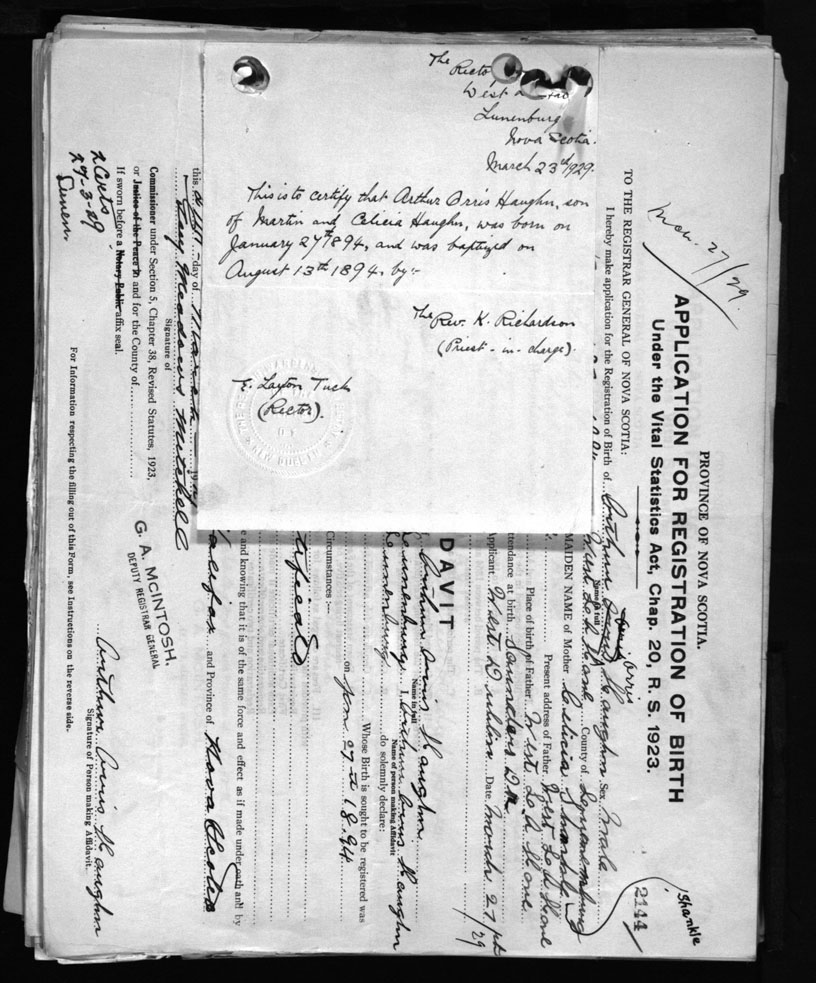 The Recto
West
Lunenburg
Nova Scotia.
March 23rd 1929.
This is to certify that Arthur Orris Haughn, son
of Martin and Elicia Haughn, was born on
January 27th 1894, and was baptized on
August 13th 1894, by:-
The Rev. K. Richardson
(Priest-in-charge).
E. Layton Tuck
(Rector).
Mar. 27/29.
PROVINCE OF NOVA SCOTIA.
APPLICATION FOR REGISTRATION OF BIRTH
Under the Vital Statistics Act, Chap. 20, R. S. 1923.
2144
Shankle
TO THE REGISTRAR GENERAL OF NOVA SCOTIA:
Orris
I hereby make application for the Registration of Birth of Arthur Haughn Sex Male
Name in full
County of Lunenburg
MAIDEN NAME of Mother
Present address of Father West
Place of birth of Father West
ttendance at birth Saunders
pplicant West Dublin Date March 27
/29
DAVIT
Arthur Orris Haughn
Name in full
Lunenburg I, Arthur Orris Haughn
Name of person making Affidavit
Lunenburg do solemnly declare:
Whose Birth is sought to be registered was
on Jan 27th 1894
Circumstances:
tificate
e and knowing that it is of the same force and effect as if made under oath and by
Halifax and Province of Nova Scotia
this day of March 19
Signature of
Commissioner under Section 5, Chapter 38, Revised Statutes, 1923,
or Justice of the Peace in and for the County of
If sworn before a Notary Public affix seal.
2 Certs
27-3-29
Lunen.
G. A. McINTOSH.
DEPUTY REGISTRAR GENERAL
Arthur Orris Haughn
Signature of Person making Affidavit.
For Information respecting the filling out of this Form, see Instructions on the reverse side.